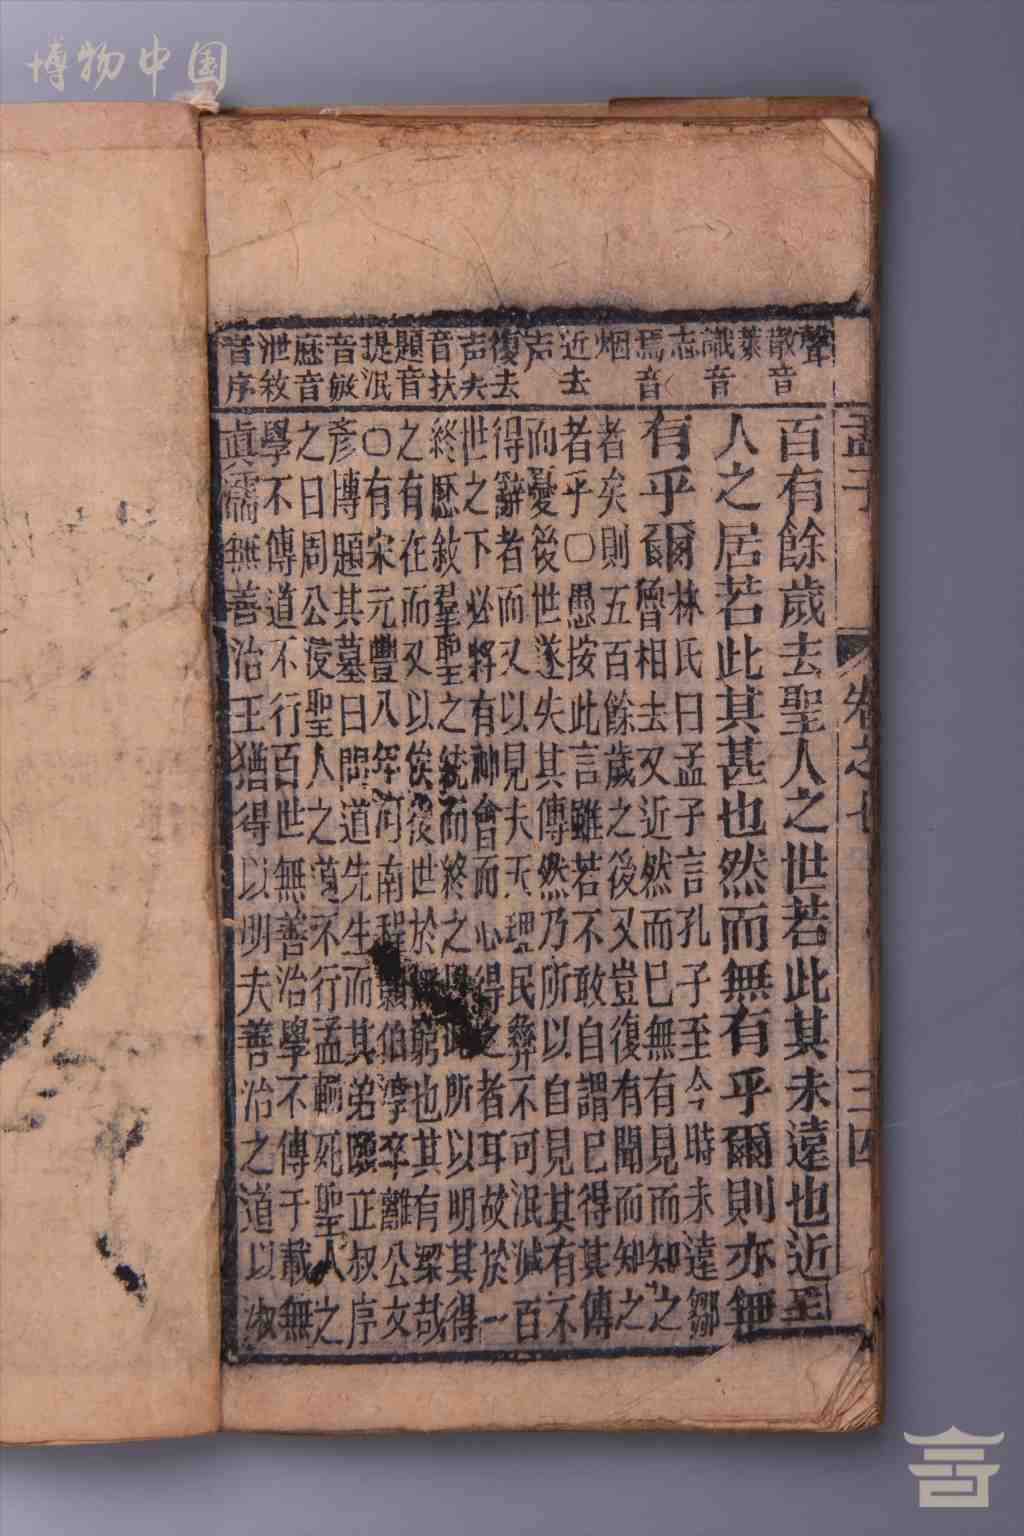 博物中国
孟子
卷之七
三四
聲
散音
葉
識音
志
焉音
烟
近去
声
復去
声夫
音扶
題音
提泯
音敏
厯音
泄敘
音序
百有餘歲去聖人之世若此其未遠也近聖
人之居若此其甚也然而無有乎爾則亦無
有乎爾林氏曰孟子言孔子至今時未遠鄒
魯相去又近然而已無有見而知之
者矣則五百餘歲之後又豈復有聞而知之
者乎〇愚按此言雖若不敢自謂已得其傳
而憂後世遂失其傳然乃所以自見其有不
得辭者而又以見夫天理民彝不可泯滅百
世之下必將有神會而心得之者耳故於一
終歷敘羣聖之統而終之此所以明其得
之有在而又以俟後世於無窮也其有深哉
〇有宋元豐八年河南程顥伯淳卒離公文
彥博題其墓曰問道先生而其弟頤正叔序
之曰周公沒聖人之道不行孟軻死聖人之
學不傳道不行百世無善治學不傳千載無
眞儒無善治王猶得以明夫善治之道以淑